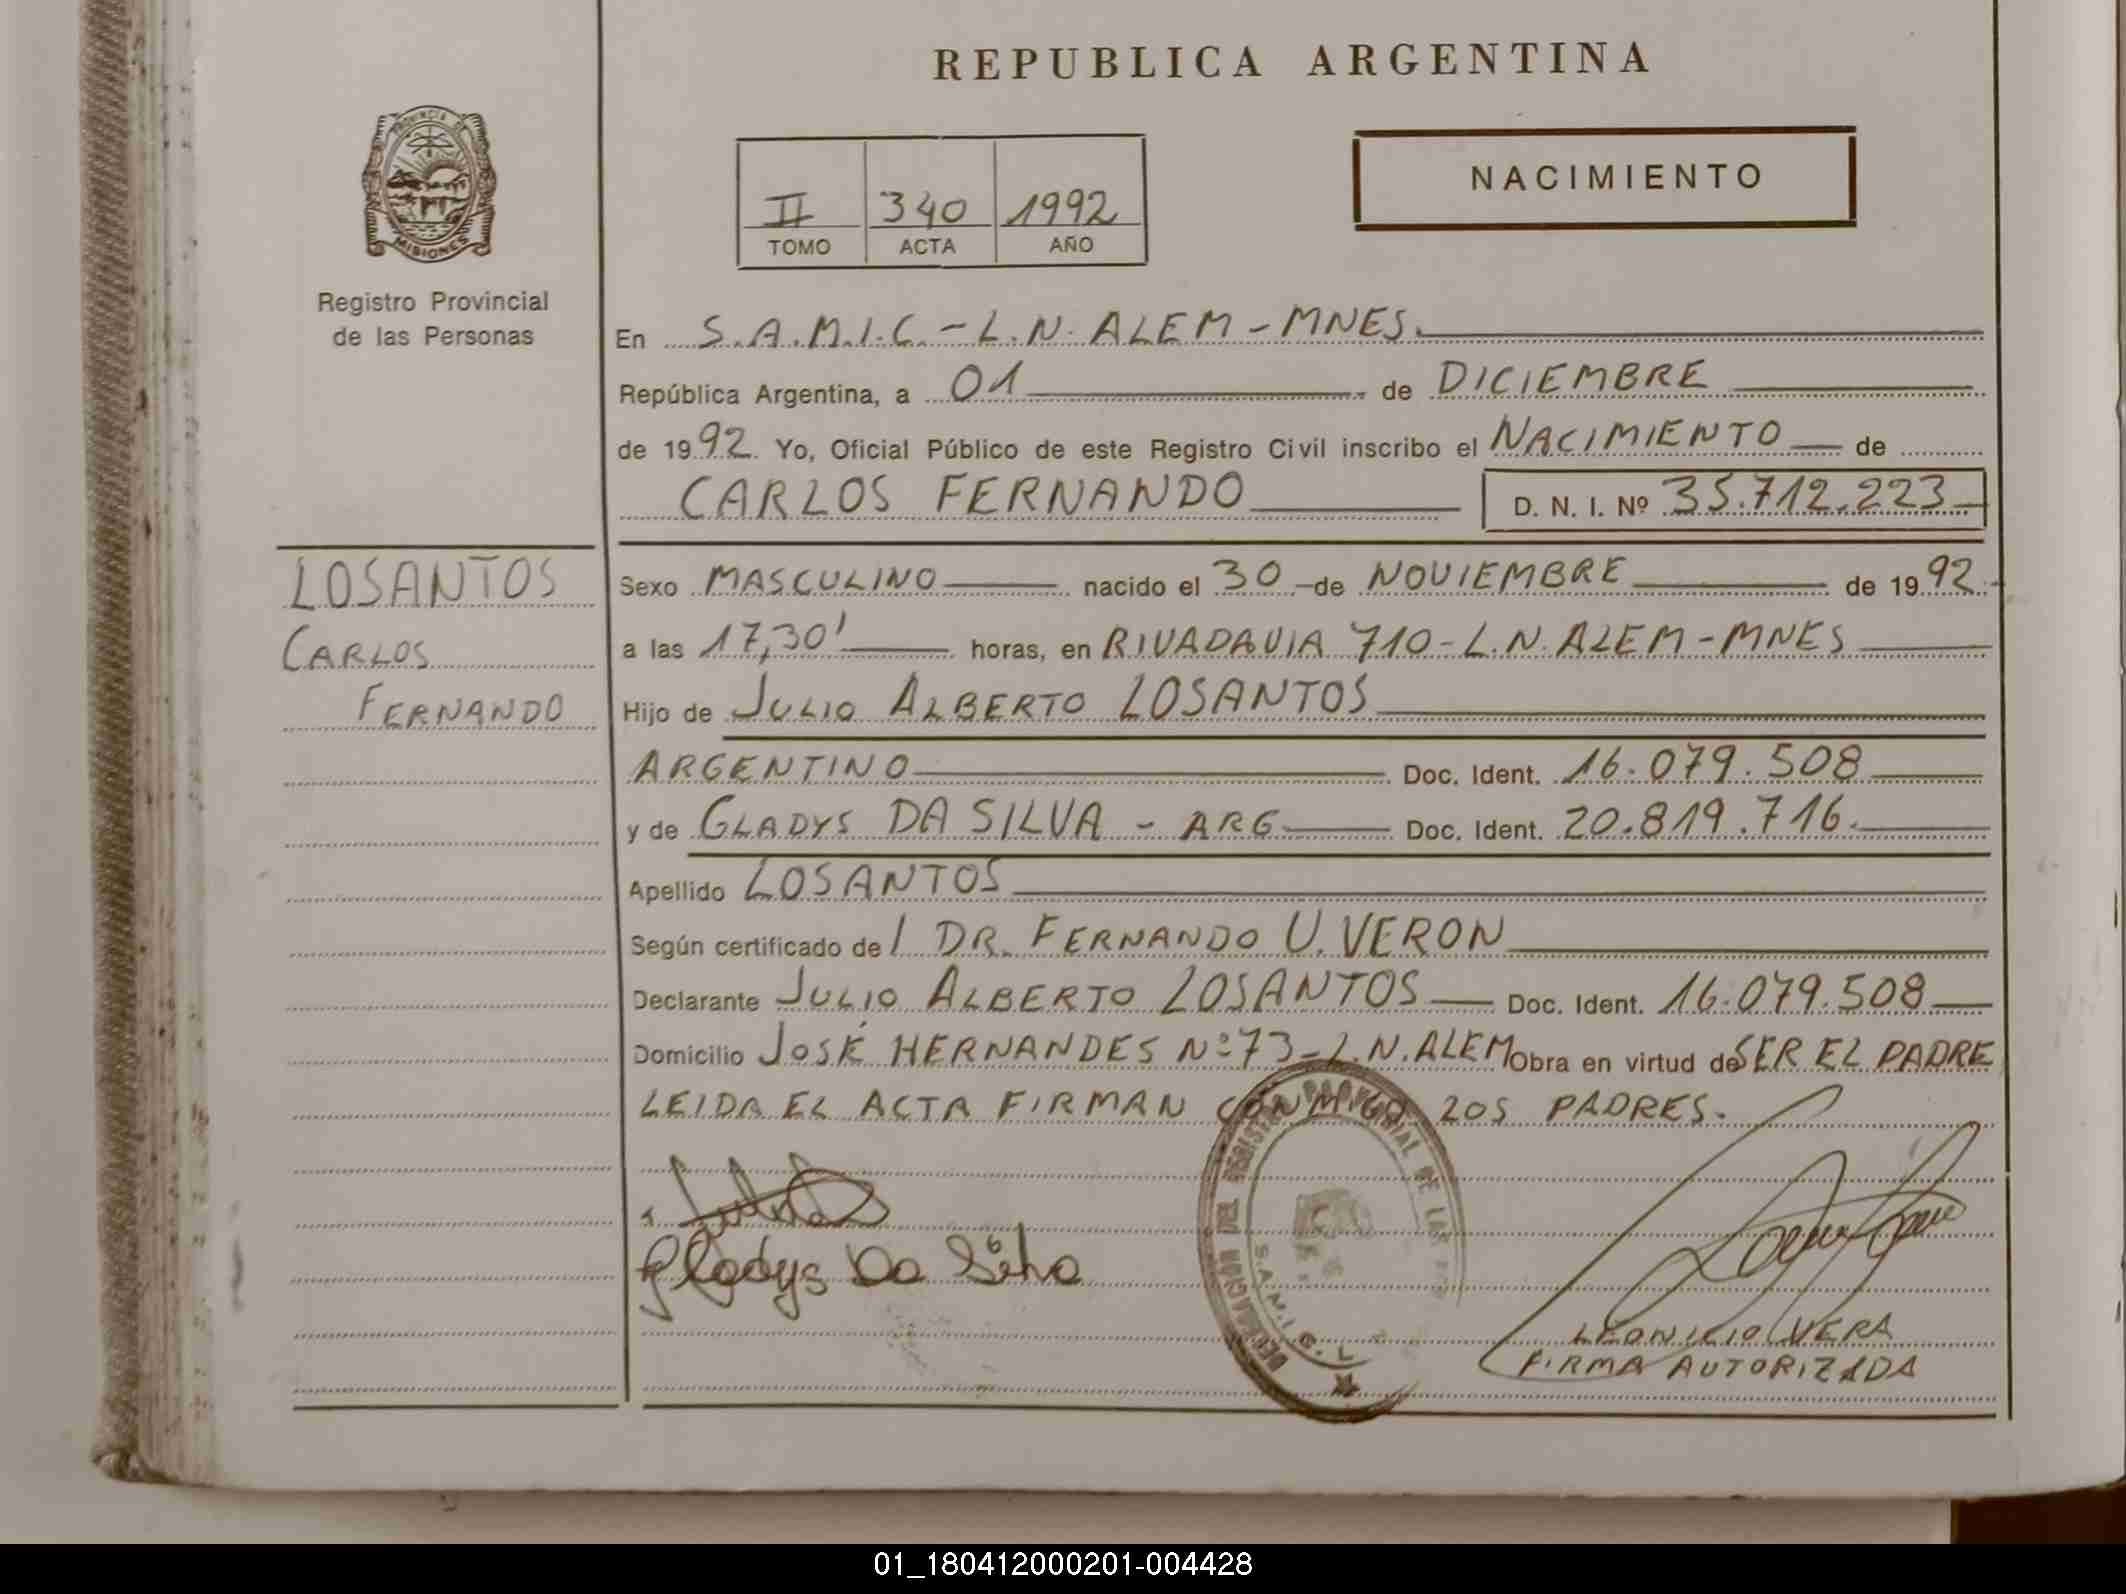 REPUBLICA ARGENTINA
PROVINCIA DE
MISIONES
Registro Provincial
de las Personas
NACIMIENTO
II 340 1992
TOMO ACTA AÑO
En S.A.M.I.C.-L.N. ALEM-MNES.
República Argentina, a 01 de DICIEMBRE
de 1992. Yo, Oficial Público de este Registro Civil inscribo el NACIMIENTO de
CARLOS FERNANDO D. N. I. Nº 35.712.223
LOSANTOS
CARLOS
FERNANDO
Sexo MASCULINO nacido el 30 de NOVIEMBRE de 1992.
a las 17,30' horas, en RIVADAVIA 710-L.N. ALEM-MNES
Hijo de JULIO ALBERTO LOSANTOS
ARGENTINO Doc. Ident. 16.079.508
y de GLADYS DA SILVA - ARG Doc. Ident. 20.819.716.
Apellido LOSANTOS
Según certificado de l DR. FERNANDO U. VERON
Declarante JULIO ALBERTO LOSANTOS Doc. Ident. 16.079.508
Domicilio JOSÉ HERNANDES Nº 73-L.N. ALEM Obra en virtud de SER EL PADRE
LEIDA EL ACTA FIRMAN CONMIGO LOS PADRES.
Gladys Da Silva
DELEGACION DEL REGISTRO PROVINCIAL DE LAS
S.A.M.I.C.
LEONICIO VERA
FIRMA AUTORIZADA
01_180412000201-004428